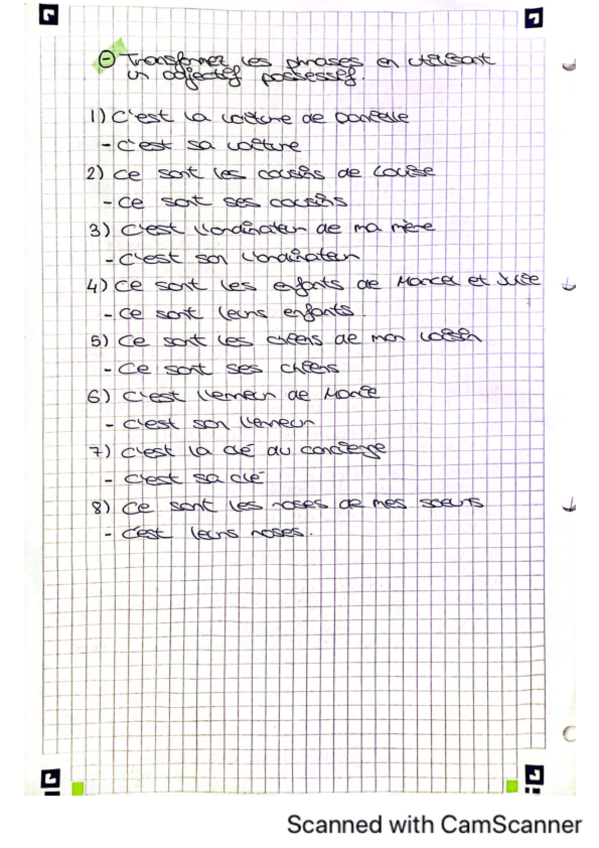 Transformez les phrases en utilisant
un adjectif possessif.
1) C'est la voiture de Danielle
- C'est sa voiture
2) Ce sont les cousins de Louise
- Ce sont ses cousins
3) C'est l'ordinateur de ma mère
- C'est son l'ordinateur
4) Ce sont les enfants de Marcel et Julie
- Ce sont leurs enfants.
5) Ce sont les chiens de mon voisin
- Ce sont ses chiens
6) C'est l'erreur de Marie
- C'est son l'erreur
7) C'est la clé du concierge
- C'est sa clé
8) Ce sont les roses de mes soeurs
- C'est leurs roses.
Scanned with CamScanner